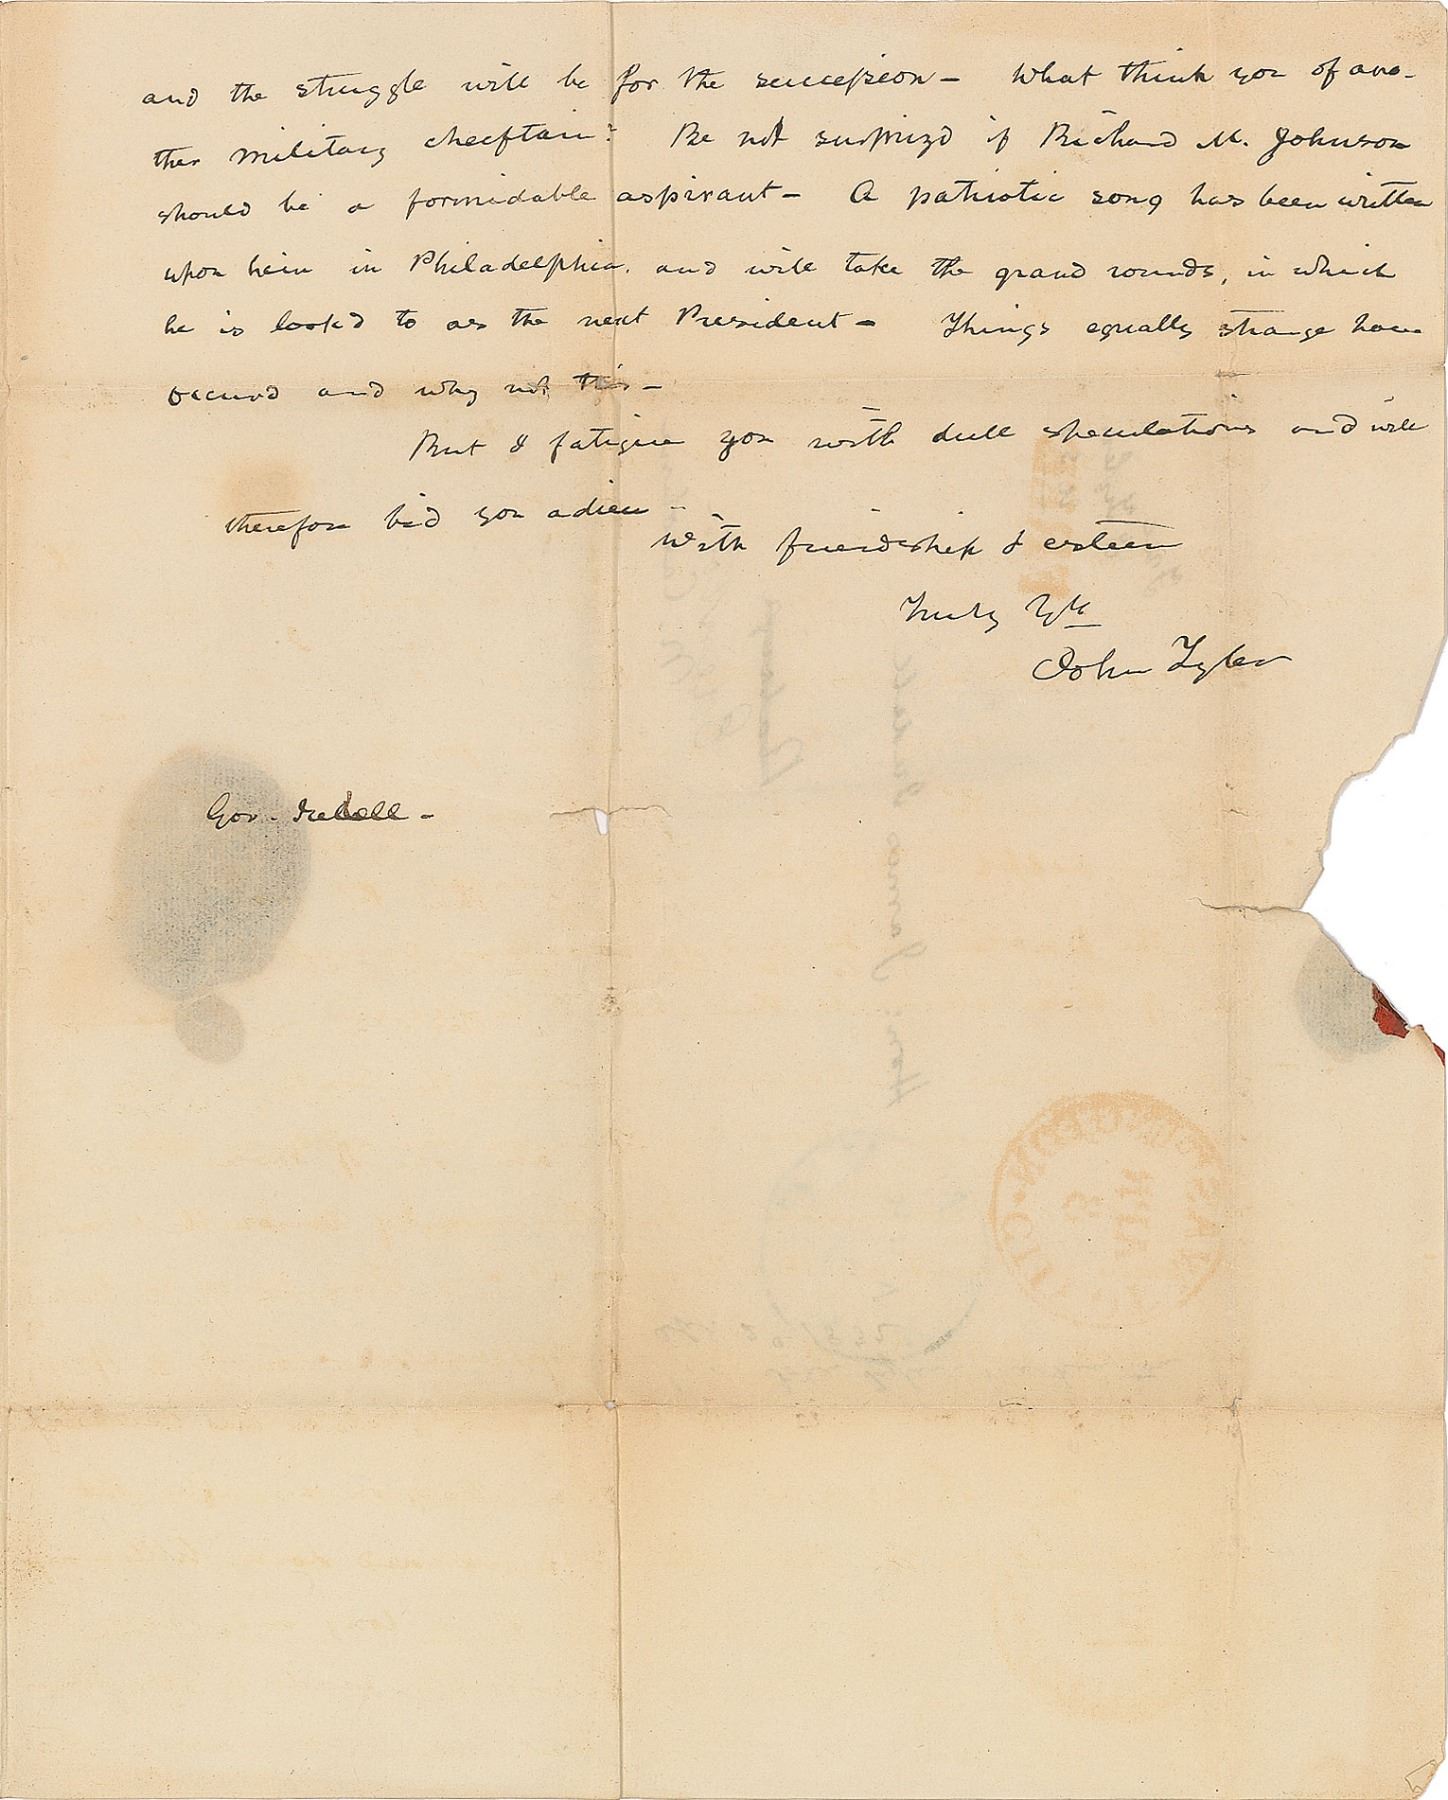 and the struggle will be for the succession – What think you of ano-
ther military cheiftain? Be not surprizd if Richard M. Johnson
should be a formidable aspirant – A patriotic song has been written
upon him in Philadelphia, and will take the grand rounds, in which
he is look'd to as the next President – Things equally strange have
occurd and why not this –
But I fatigue you with dull speculations and will
therefore bid you adieu –
With friendship & esteem
Truly Yrs
John Tyler
Gov. Iredell –